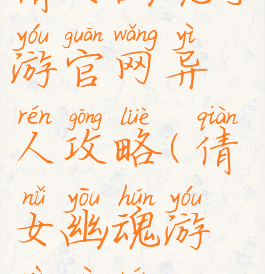 yóu guān wǎng yì
游官网异
rén gōng lüè qiàn
人攻略(倩
nǚ yōu hún yóu
女幽魂游